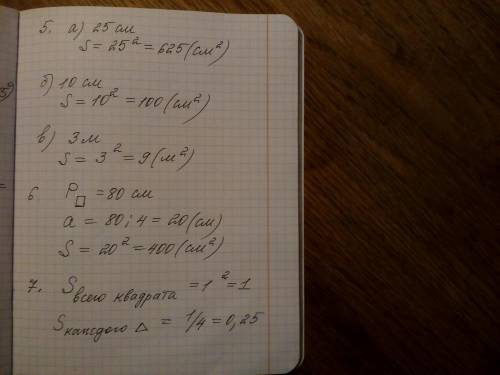 5. а) 25 см
S = 25² = 625 (см²)
б) 10 см
S = 10² = 100 (см²)
в) 3 м
S = 3² = 9 (м²)
6 P□ = 80 см
a = 80 : 4 = 20 (см)
S = 20² = 400 (см²)
7. S всего квадрата = 1² = 1
S каждого △ = 1/4 = 0,25